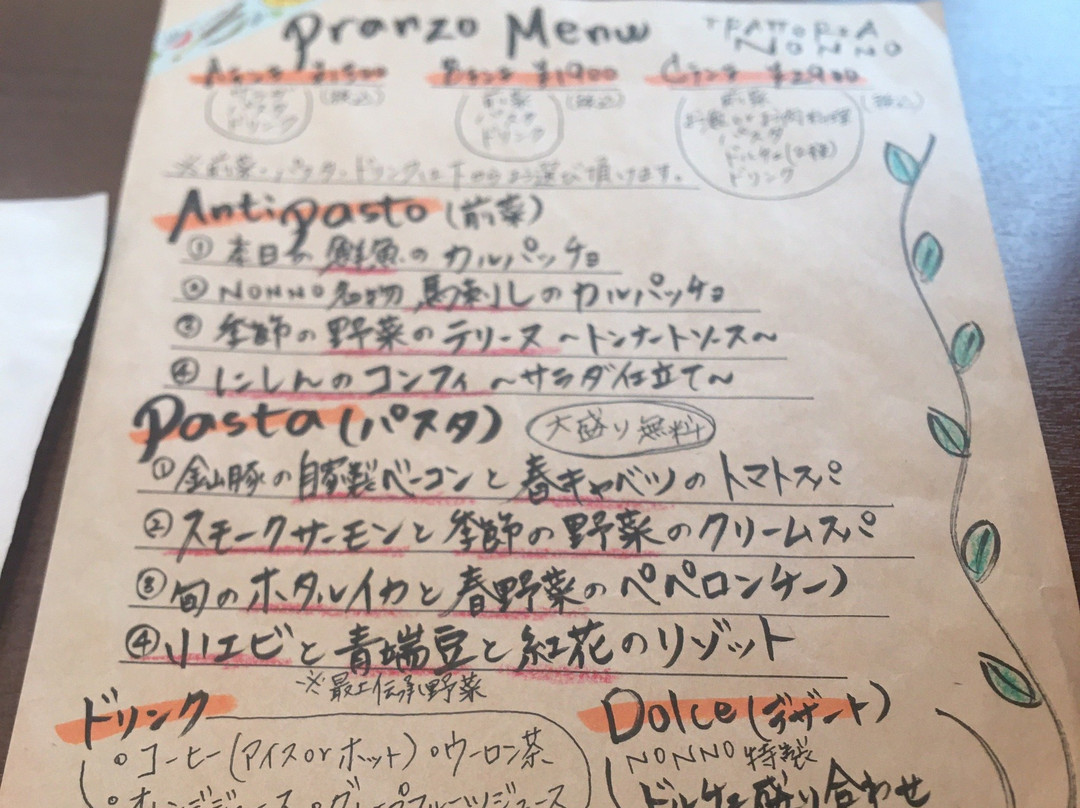 Pranzo Menu
TRATTORIA
NONNO
Aランチ ¥1500 Bランチ ¥1900 Cランチ ¥2900
(税込) (税込) (税込)
パスタ
ドリンク
前菜
パスタ
ドリンク
前菜
パスタ
ドルチェ(2種)
ドリンク
※前菜・パスタ・ドリンクは下からお選び頂けます。
Antipasto (前菜)
① 本日の鮮魚のカルパッチョ
② NONNO名物 馬刺しのカルパッチョ
③ 季節の野菜のテリーヌ ~トンナートソース~
④ にしんのコンフィ ~サラダ仕立て~
Pasta (パスタ) 大盛り無料
① 金山豚の自家製ベーコンと春キャベツのトマトスパ
② スモークサーモンと季節の野菜のクリームスパ
③ 旬のホタルイカと春野菜のペペロンチーノ
④ 小エビと青端豆と紅花のリゾット
※最上伝承野菜
ドリンク
・コーヒー(アイスorホット) ・ウーロン茶
・オレンジジュース ・グレープフルーツジュース
Dolce (デザート)
NONNO特製
ドルチェ盛り合わせ